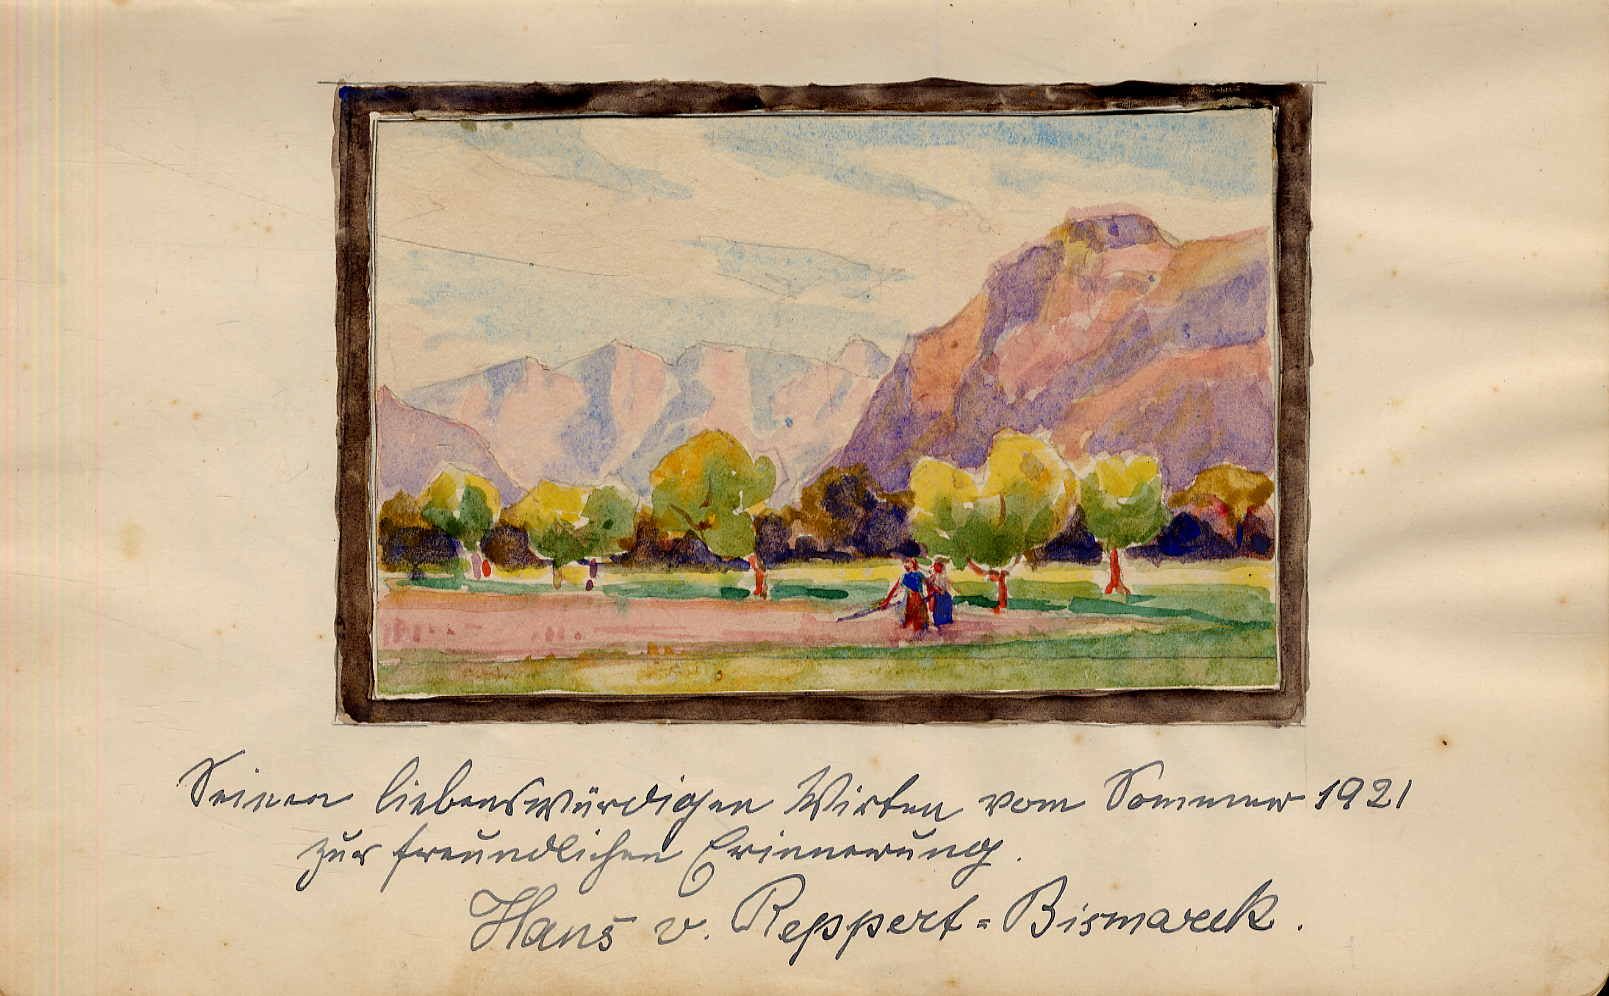 Seinen liebenswürdigen Wirten vom Sommer 1921
zur freundlichen Erinnerung.
Hans v. Reppert-Bismarck.